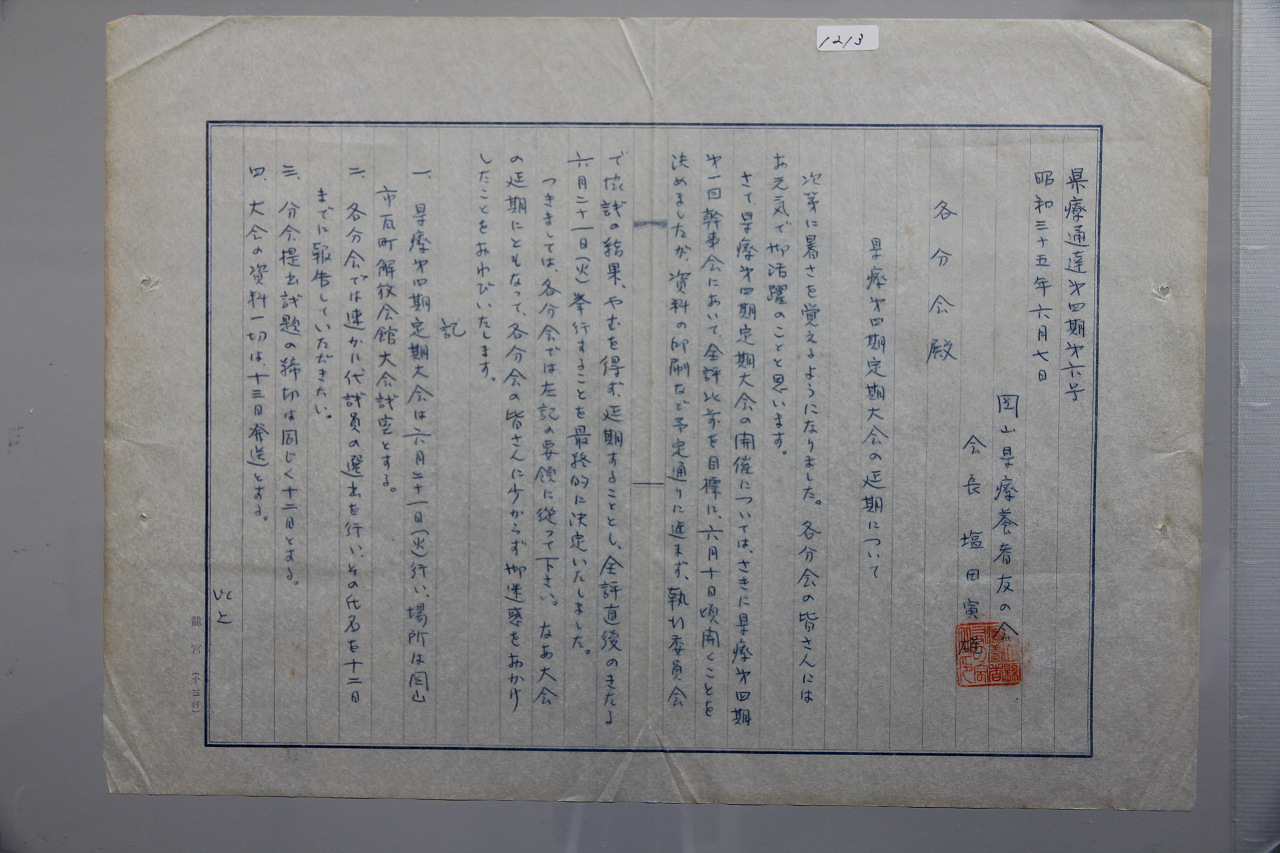 1213
県療通達第四期第六号
昭和三十五年六月七日
岡山県療養者友の会
会長 塩田寅雄
各分会殿
県療第四期定期大会の延期について
次第に暑さを覚えるようになりました。各分会の皆さんには
お元気で御活躍のことと思います。
さて県療第四期定期大会の開催については、さきに県療第四期
第一回幹事会において全評以前を目標に、六月十日頃開くことを
決めましたが、資料の印刷など予定通りに進まず、執行委員会
で協議の結果、やむを得ず、延期することとし、全評直後のきたる
六月二十一日(火)挙行することを最終的に決定いたしました。
つきましては、各分会では左記の要領に従って下さい。なお大会
の延期にともなって、各分会の皆さんに少からず御迷惑をおかけ
したことをおわびいたします。
記
一、県療第四期定期大会は六月二十一日(火)行い、場所は岡山
市瓦町解放会館大会議室とする。
二、各分会では速かに代議員の選出を行い、その氏名を十二日
までに報告していただきたい。
三、分会提出議題の締切は同じく十二日とする。
四、大会の資料一切は、十三日発送とする。
以上